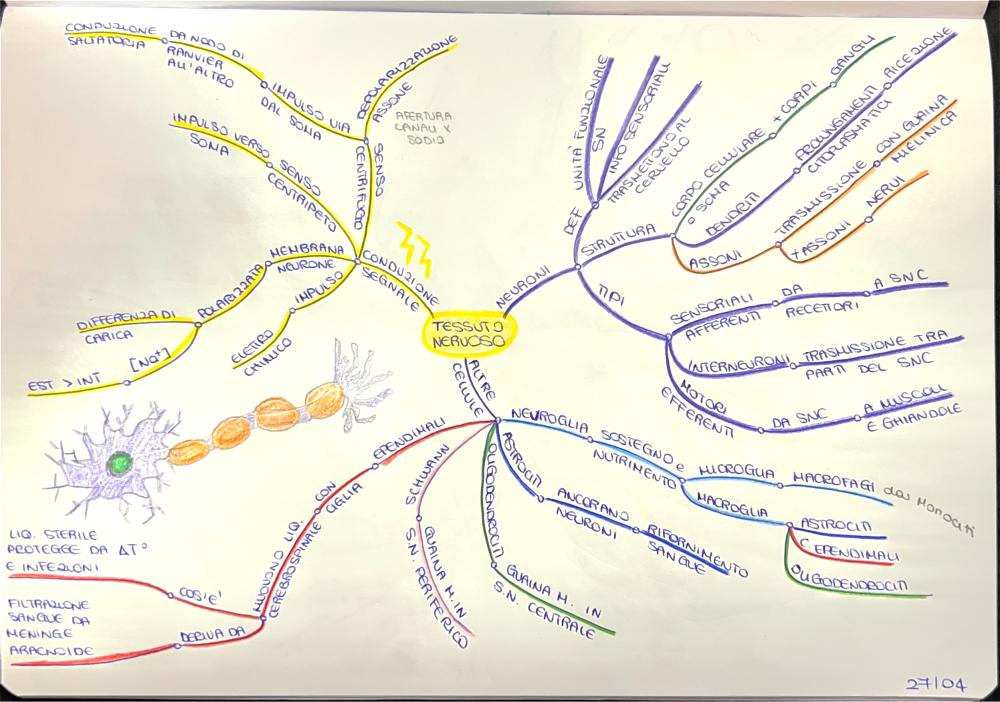 TESSUTO
NERVOSO
CONDUZIONE
SEGNALE
SENSO
CENTRIFUGO
DEPOLARIZZAZIONE
ASSONE
APERTURA
CANALI X
SODIO
IMPULSO VIA
DAL SOMA
DA NODO DI
RANVIER
ALL'ALTRO
CONDUZIONE
SALTATORIA
SENSO
CENTRIPETO
IMPULSO VERSO
SOMA
MEMBRANA
NEURONE
POLARIZZATA
DIFFERENZA DI
CARICA
[Na+]
EST > INT
IMPULSO
ELETTRO
CHIMICO
NEURONI
DEF
UNITÀ FUNZIONALE
S.N
INFO SENSORIALI
TRASMETTONO AL
CERVELLO
STRUTTURA
CORPO CELLULARE
O SOMA
+ CORPI
GANGLI
DENDRITI
PROLUNGAMENTI
CITOPLASMATICI
RICEZIONE
ASSONI
TRASMISSIONE
CON GUAINA
MIELINICA
+ ASSONI
NERVI
TIPI
SENSORIALI
AFFERENTI
DA
RECETTORI
A SNC
INTERNEURONI
TRASMISSIONE TRA
PARTI DEL SNC
MOTORI
EFFERENTI
DA SNC
A MUSCOLI
E GHIANDOLE
ALTRE
CELLULE
NEUROGLIA
SOSTEGNO e
NUTRIMENTO
MICROGLIA
MACROFAGI
dai Monociti
MACROGLIA
ASTROCITI
C. EPENDIMALI
OLIGODENDROCITI
ASTROCITI
ANCORANO
NEURONI
RIFORNIMENTO
SANGUE
OLIGODENDROCITI
GUAINA M. IN
S.N. CENTRALE
SCHWANN
GUAINA M. IN
S.N. PERIFERICO
EPENDIMALI
CON
CIGLIA
MUOVONO LIQ.
CEREBROSPINALE
COS'E'
LIQ. STERILE
PROTEGGE DA ΔT°
E INFEZIONI
DERIVA DA
FILTRAZIONE
SANGUE DA
MENINGE
ARACNOIDE
27/04